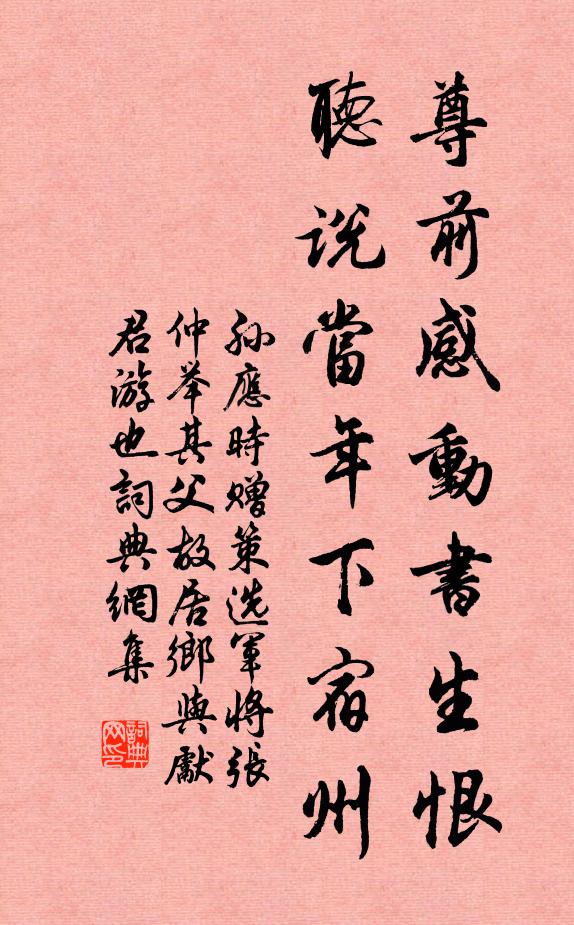 尊前感動書生恨
聽說當年下宿州
孫應時贈策選軍將張
仲举其父故居鄉與獻
君游也詞典網集
詞典網印